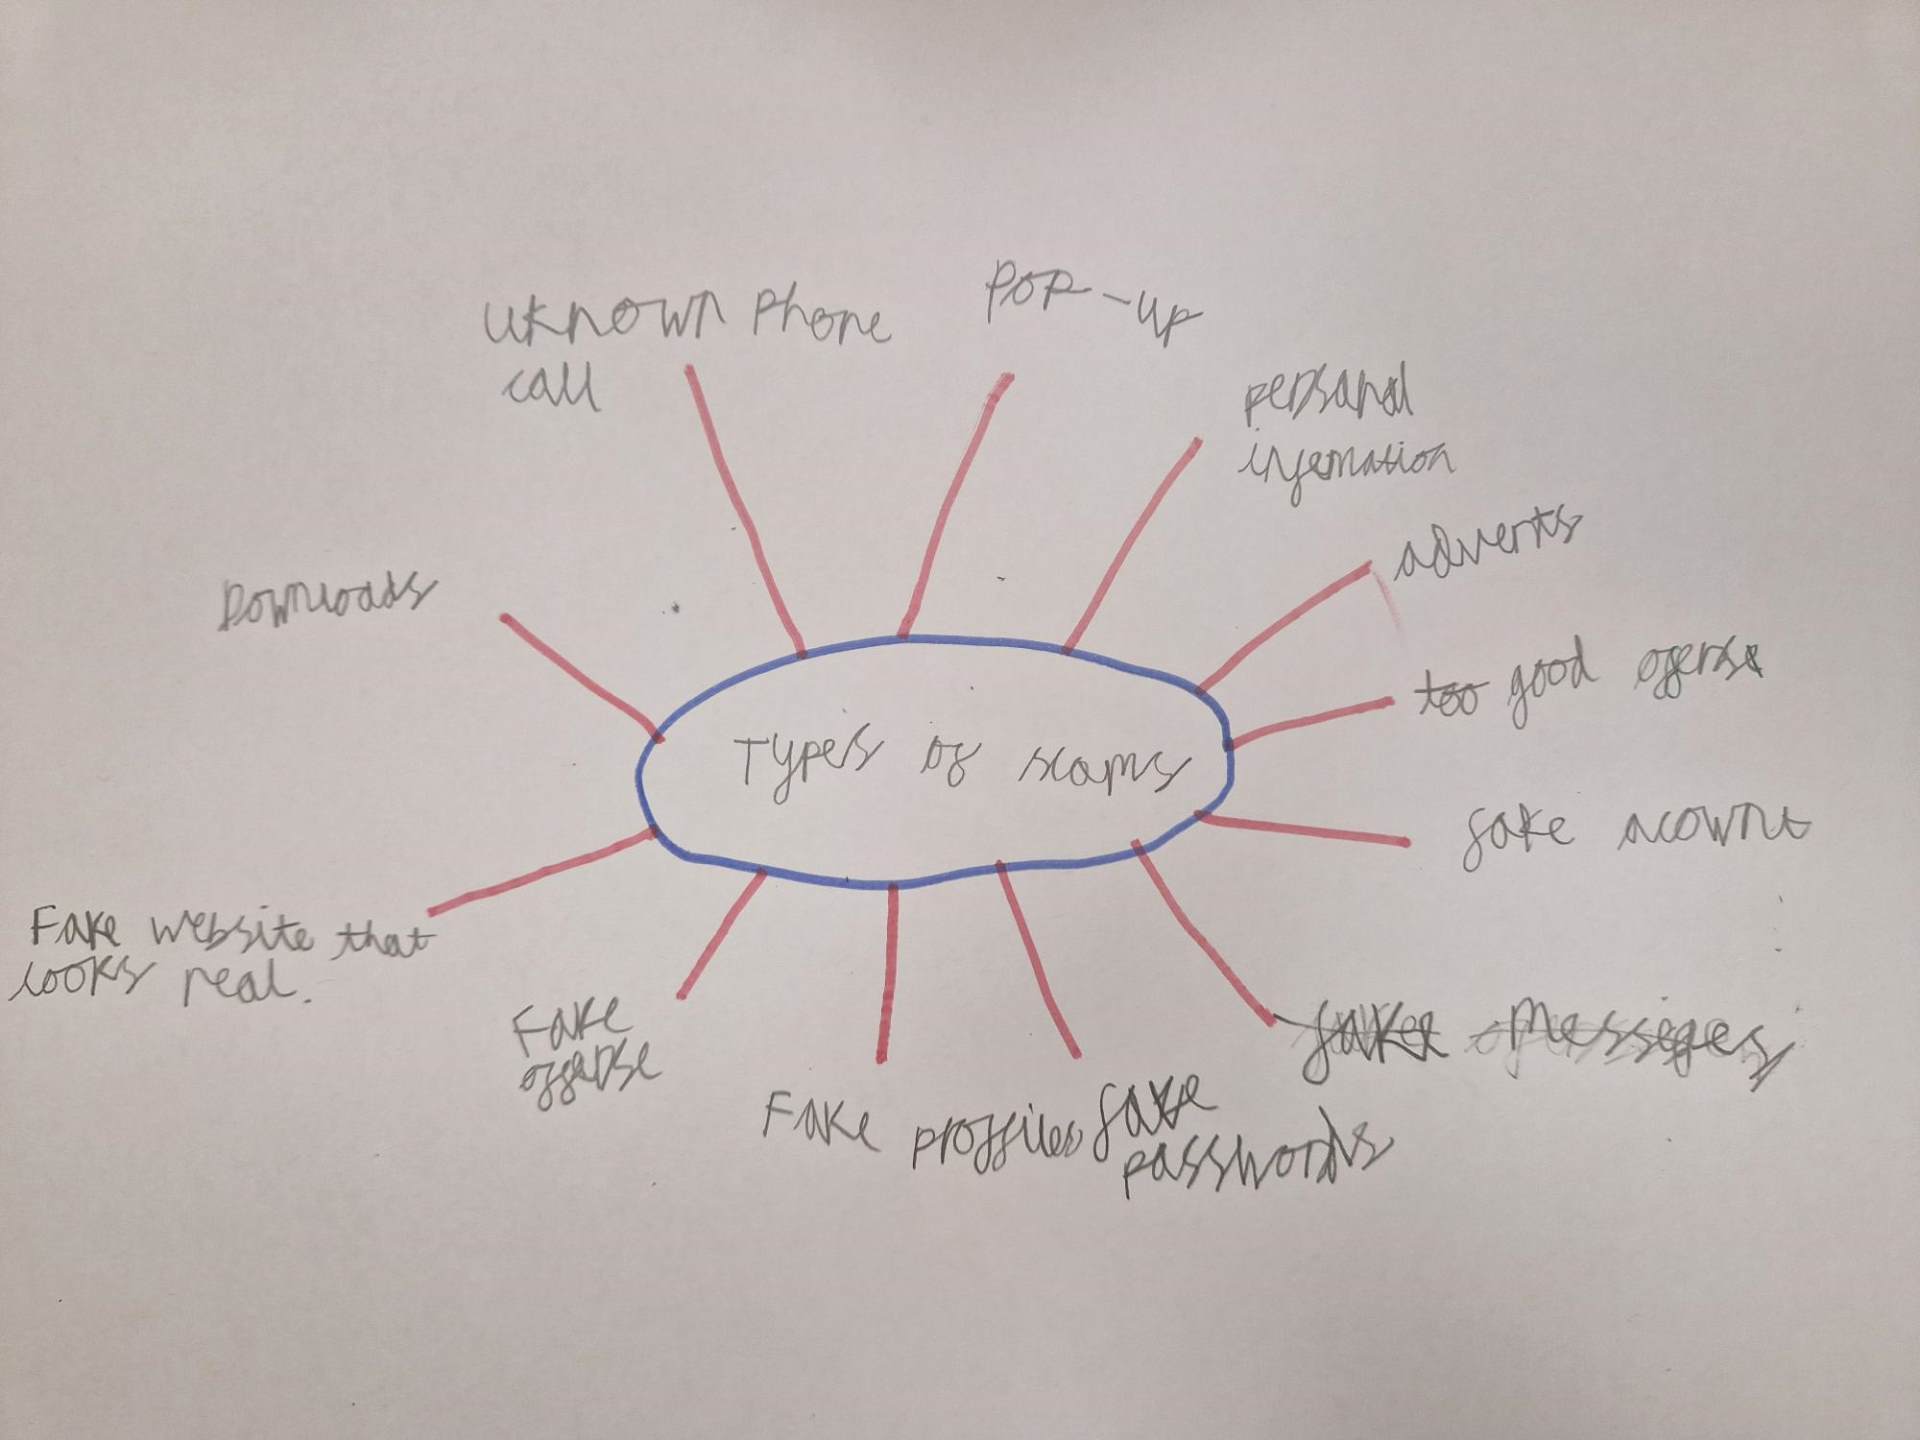 uknown phone
call
pop-up
persanal
infemation
adverts
too good offerse
fake acownt
fake messeges
fake
passwords
Fake proffiles
Fake
offerse
Fake website that
looks real.
Downloads
Types of scams